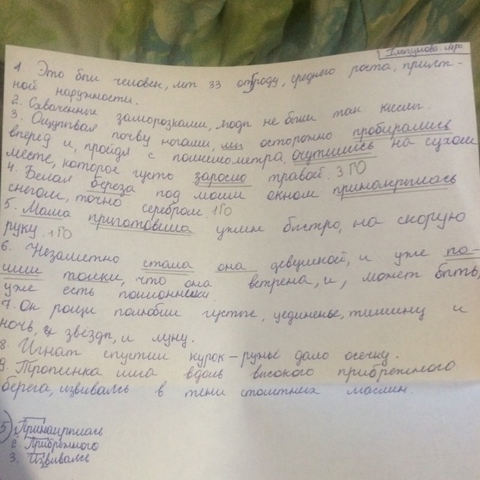 1. Это был человек, лет 33 отроду, среднего роста, прият-
ной наружности.
2. Схваченные заморозками, плоды не были так кислы.
3. Ощупывая почву ногами, мы осторожно пробирались
вперед и, пройдя с полкилометра, очутились на сухом
месте, которое густо заросло травой. 3 ГО
4. Белая береза под моим окном принакрылась
снегом, точно серебром. 1ГО
5. Маша приготовила ужин быстро, на скорую
руку. 1 ГО
6. Незаметно стала она девушкой, и уже по-
шли толки, что она ветрена, и, может быть,
уже есть поклонники.
7. Он рощи полюбил густые, уединенье, тишину и
ночь, и звезды, и луну.
8. Игнат спустил курок - ружье дало осечку.
9. Тропинка шла вдоль высокого прибрежного
берега, извиваясь в тени маслин.
5) 1. Принакрылась
2. Прибрежного
3. Извиваясь